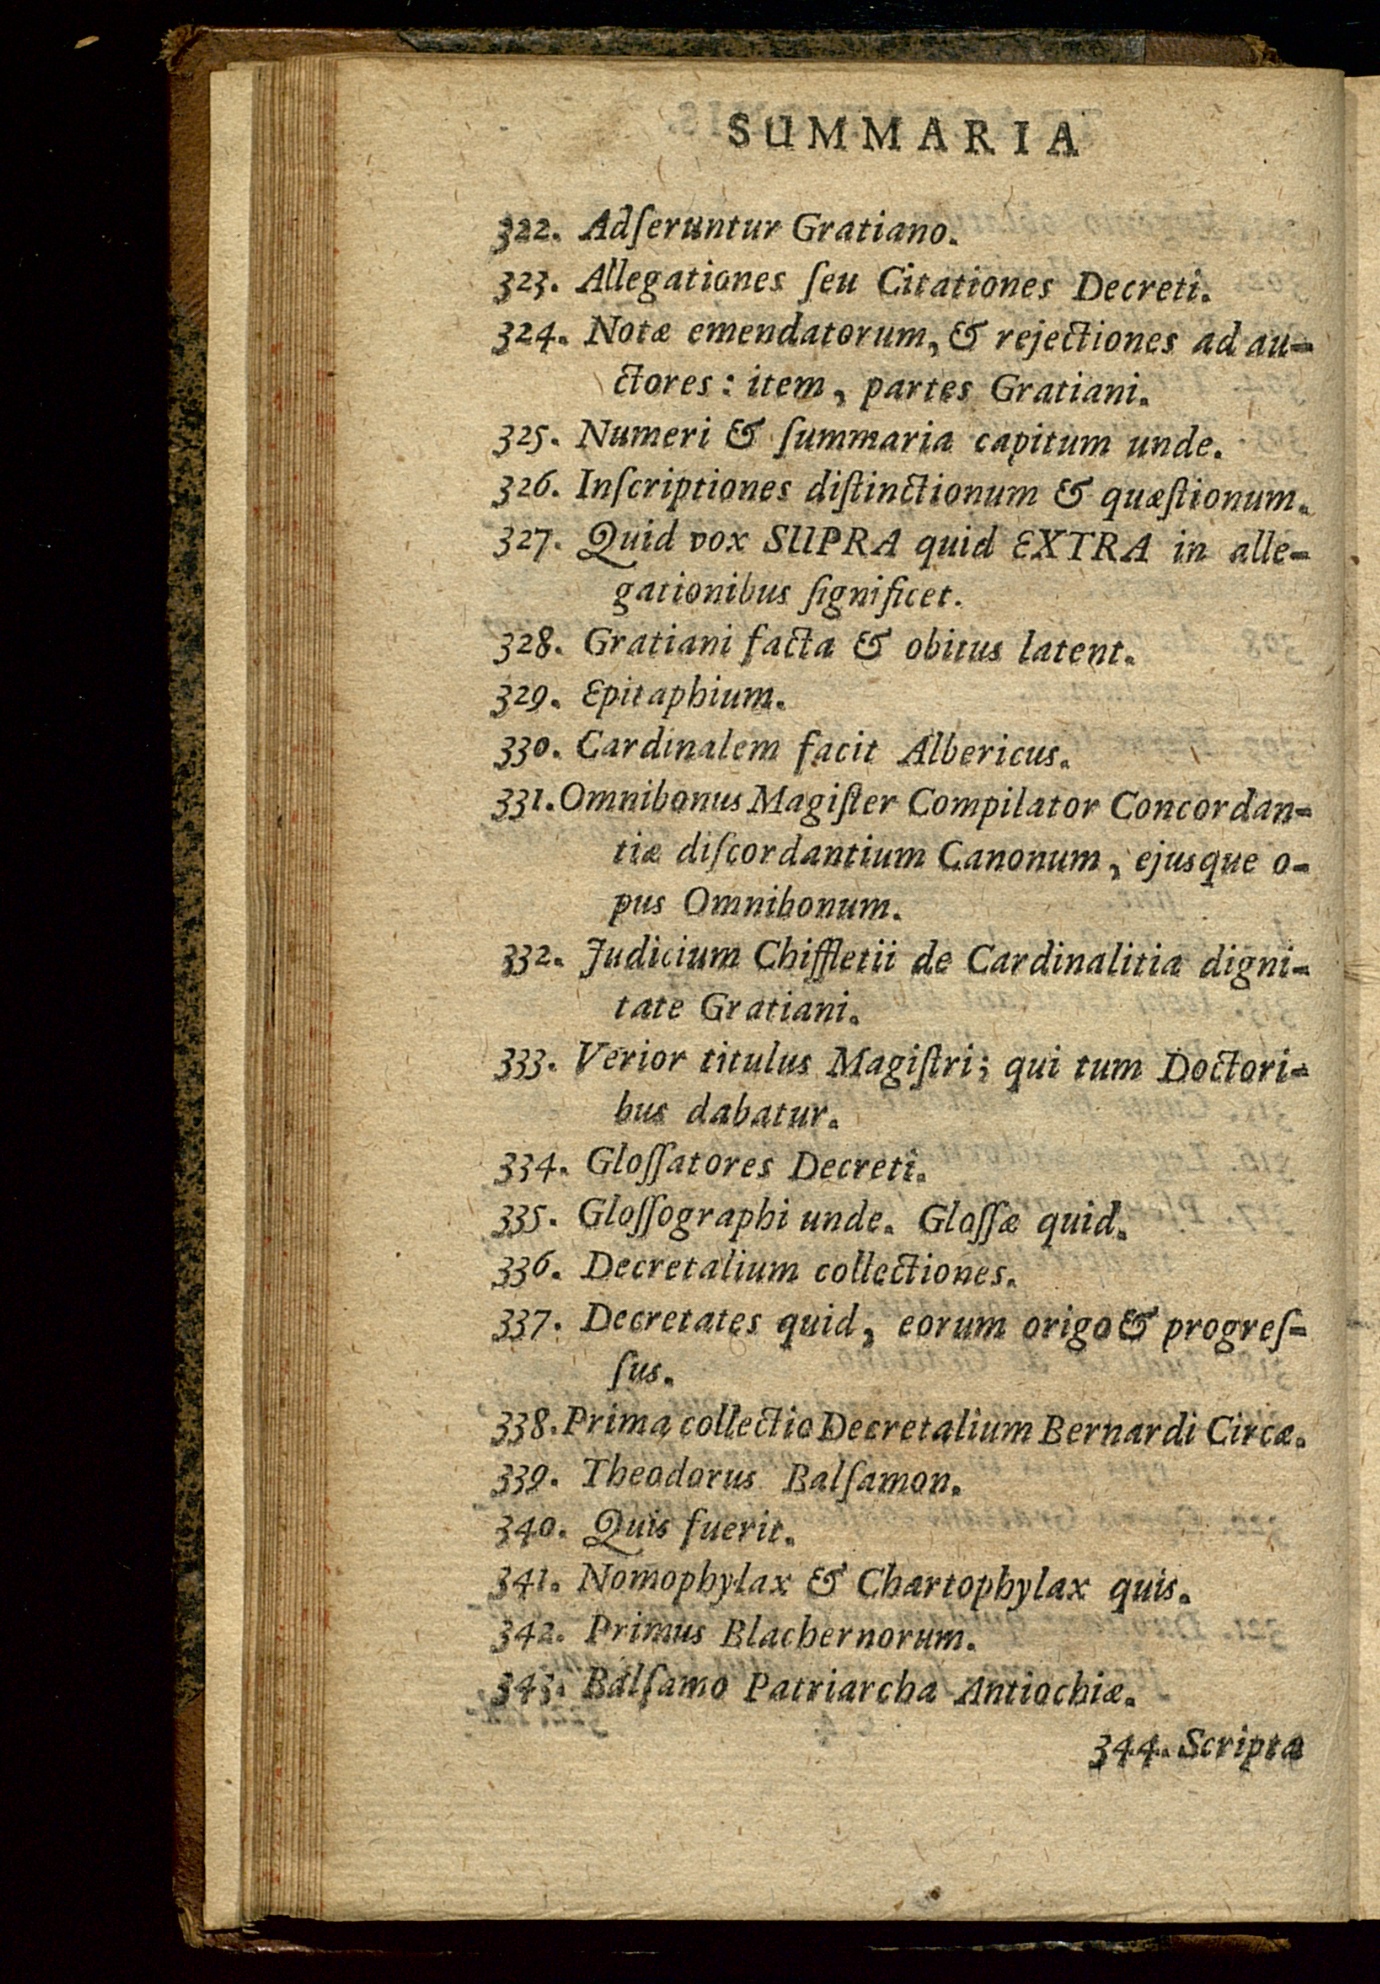 SUMMARIA
322. Adſeruntur Gratiano.
323. Allegationes ſeu Citationes Decreti.
324. Notæ emendatorum, & rejectiones ad au-
ctores: item, partes Gratiani.
325. Numeri & ſummaria capitum unde.
326. Inſcriptiones diſtinctionum & quæſtionum.
327. Quid vox SUPRA quid EXTRA in alle-
gationibus ſignificet.
328. Gratiani facta & obitus latent.
329. Epitaphium.
330. Cardinalem facit Albericus.
331. Omnibonus Magiſter Compilator Concordan-
tiæ diſcordantium Canonum, ejusque o-
pus Omnibonum.
332. Judicium Chiffletii de Cardinalitia digni-
tate Gratiani.
333. Verior titulus Magiſtri; qui tum Doctori-
bus dabatur.
334. Gloſſatores Decreti.
335. Gloſſographi unde. Gloſſæ quid.
336. Decretalium collectiones.
337. Decretates quid, eorum origo & progreſ-
ſus.
338. Prima collectio Decretalium Bernardi Circæ.
339. Theodorus Balſamon.
340. Quis fuerit.
341. Nomophylax & Chartophylax quis.
342. Primus Blachernorum.
343. Balſamo Patriarcha Antiochiæ.
344. Scripta